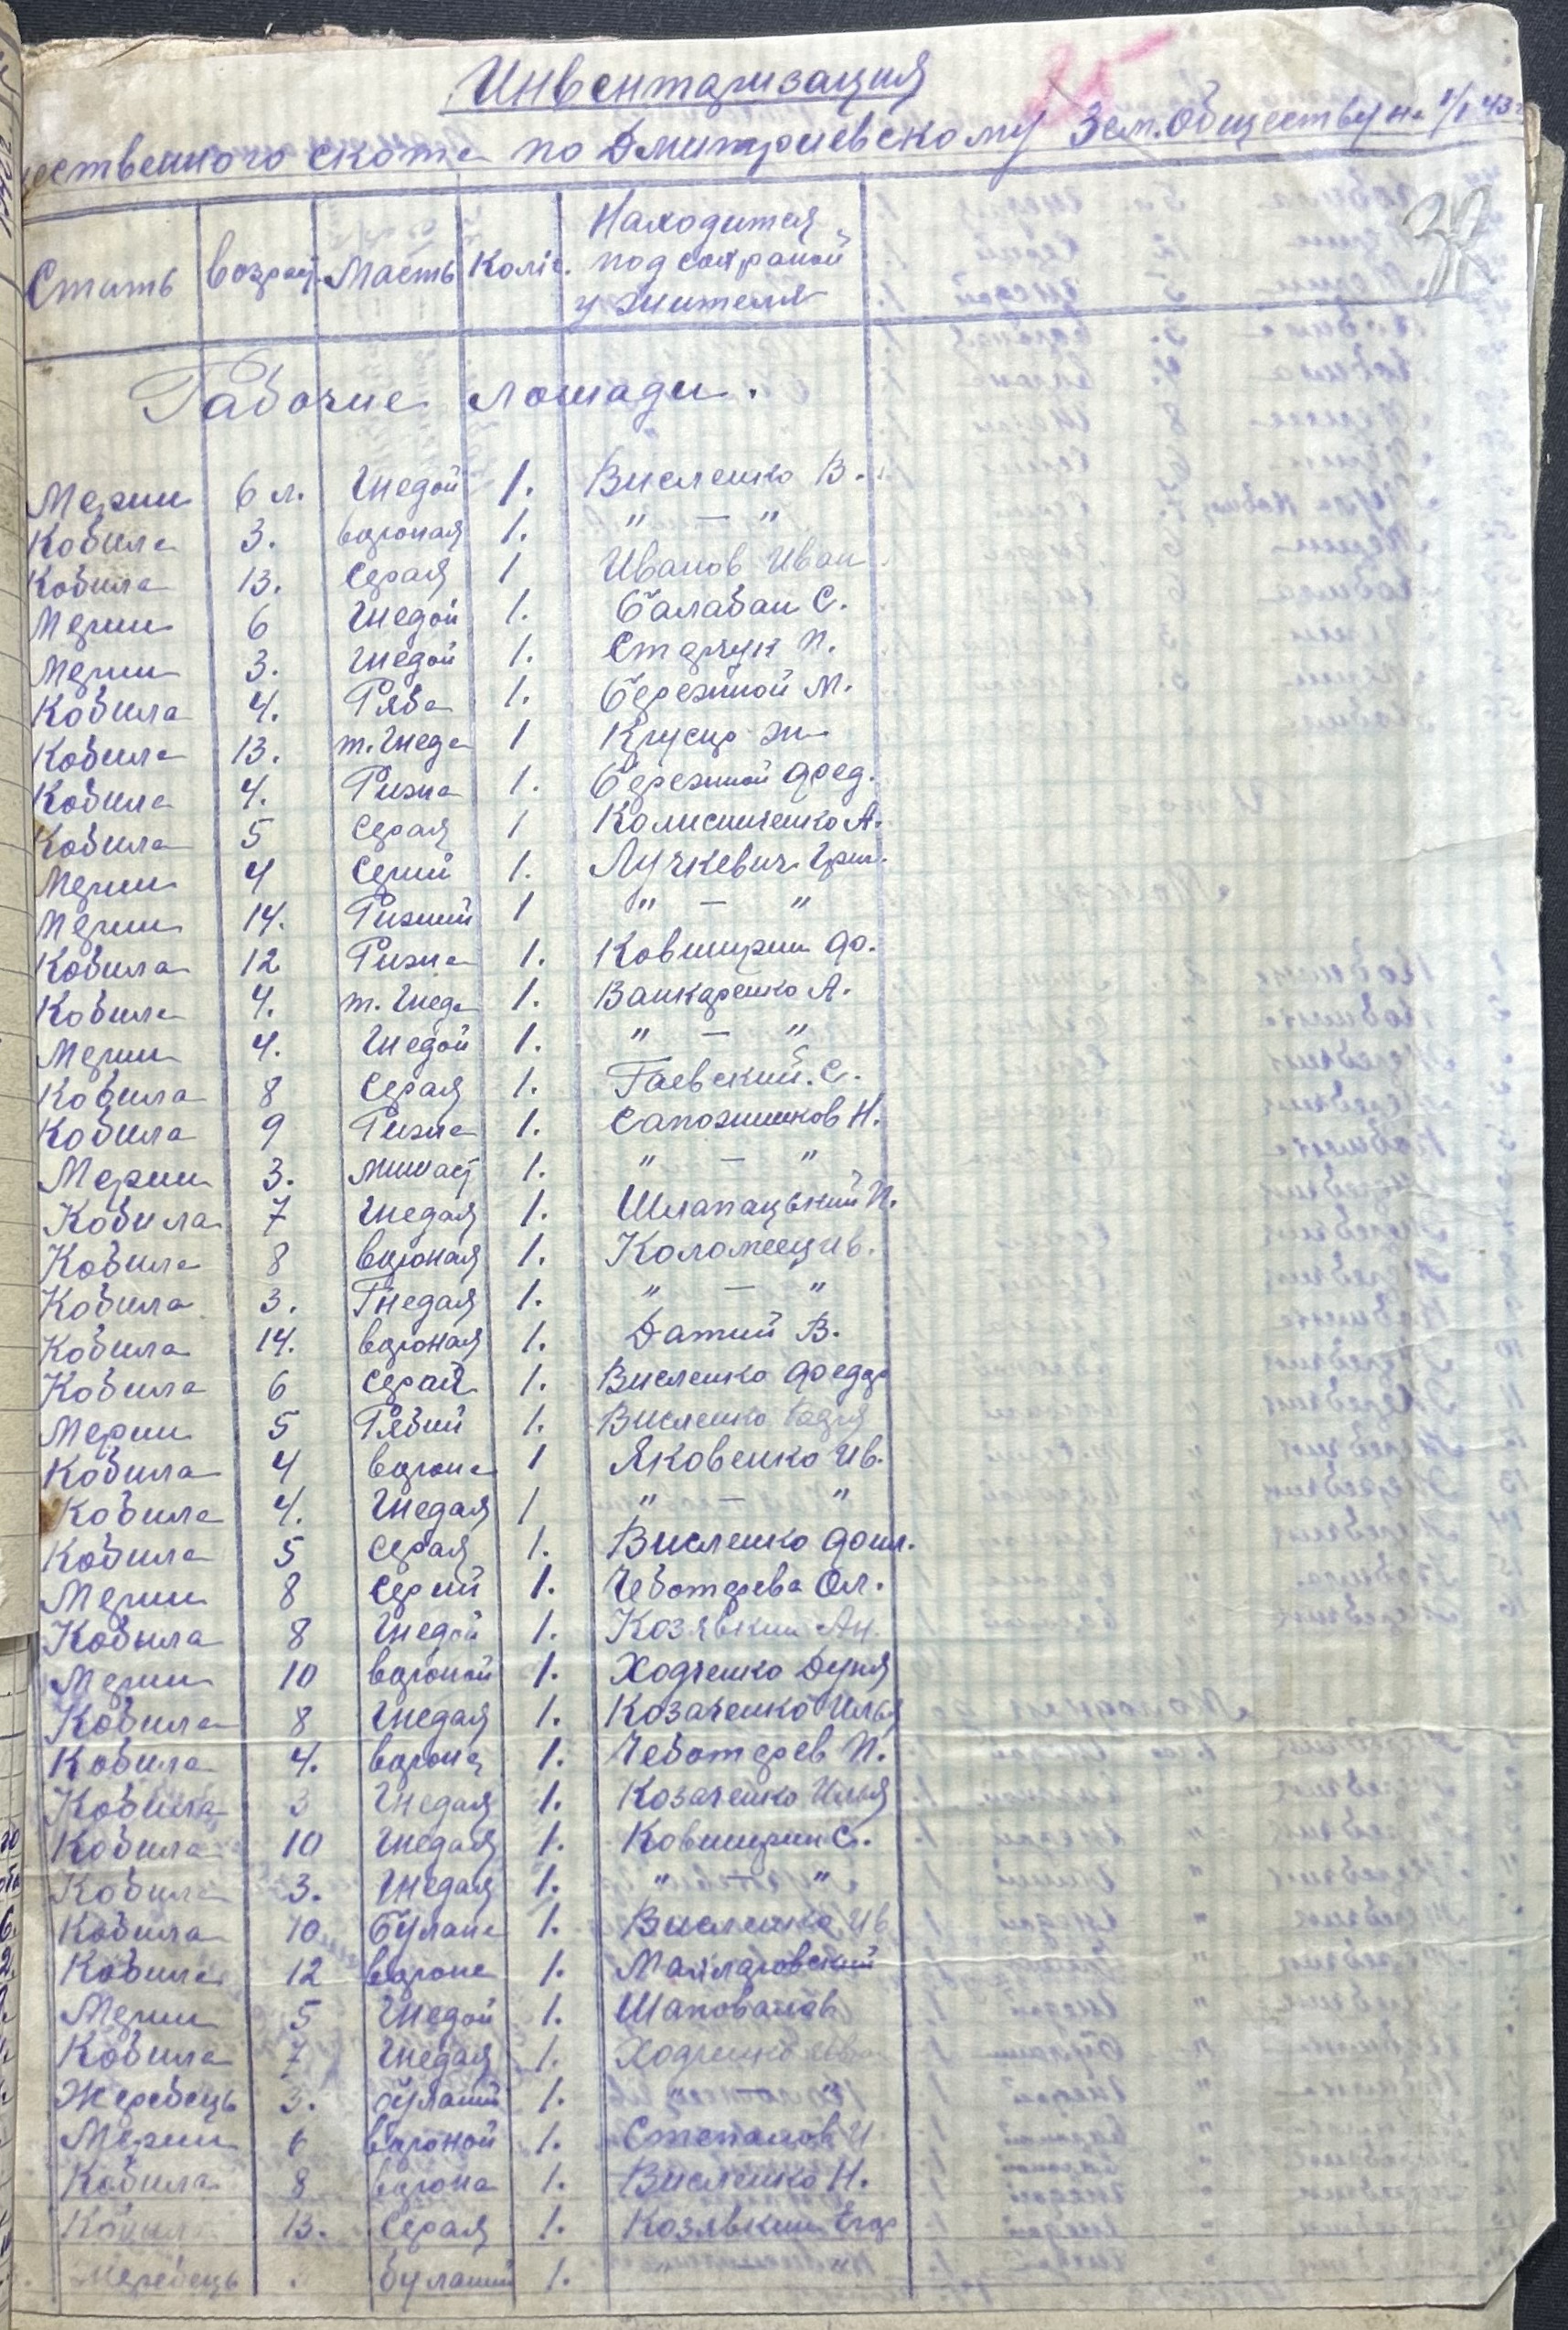 Инвентаризация
ественного скота по Дмитриевскому Зем. Обществу на 1/I 43г
Стать возраст Масть Коліч. Находится под сохраной у жителя
Рабочие лошади.
Мерин 6 л. Гнедой 1. Висленко В.
Кобила 3. вороная 1. " — "
Кобила 13. Серая 1 Иванов Иван
Мерин 6 Гнедой 1. Балабан С.
Мерин 3. Гнедой 1. Старчук П.
Кобила 4. Ряба 1. Бережной М.
Кобила 13. т. Гнеда 1
Кобила 4. Рижа 1. Бережной Фед.
Кобила 5 Серая 1 Колисниченко А.
Мерин 4 Серий 1. Лучкевич Григ.
Мерин 14. Рижий 1 " — "
Кобила 12 Рижа 1. Ковширин Ф.
Кобила 4. т. Гнеда 1. Ванкаренко А.
Мерин 4. Гнедой 1. " — "
Кобила 8 Серая 1. Гаевский С.
Кобила 9 Рижа 1. Сапожников Н.
Мерин 3. 1. " — "
Кобила 7 Гнедая 1. Шлапацький П.
Кобила 8 вороная 1. Коломеец Ив.
Кобила 3. Гнедая 1. " — "
Кобила 14. вороная 1. Датий В.
Кобила 6 Серая 1. Висленко Федор
Мерин 5 Рябий 1. Висленко
Кобила 4 ворона 1 Яковенко Ив.
Кобила 4. Гнедая 1 " — "
Кобила 5 Серая 1. Висленко Фил.
Мерин 8 Серий 1. Чеботарева Ол.
Кобила 8 Гнедой 1. Козявкин Ан.
Мерин 10 вороной 1. Ходченко Дуня
Кобила 8 Гнедая 1. Козаченко Илья
Кобила 4. ворона 1. Чеботарев П.
Кобила 3 Гнедая 1. Козаченко Илья
Кобила 10 Гнедая 1. Ковширин С.
Кобила 3. Гнедая 1. " — "
Кобила 10 Булана 1. Висленко Ив
Кобила 12 ворона 1.
Мерин 5 Гнедой 1. Шаповалов
Кобила 7 Гнедая 1. Ходченко
Жеребець 3. буланий 1. " — "
Мерин 6 вороной 1. Степанов И
Кобила 8 ворона 1. Висленко Н.
Кобила 13. Серая 1. Козявкин Егор
Жеребець буланий 1. "